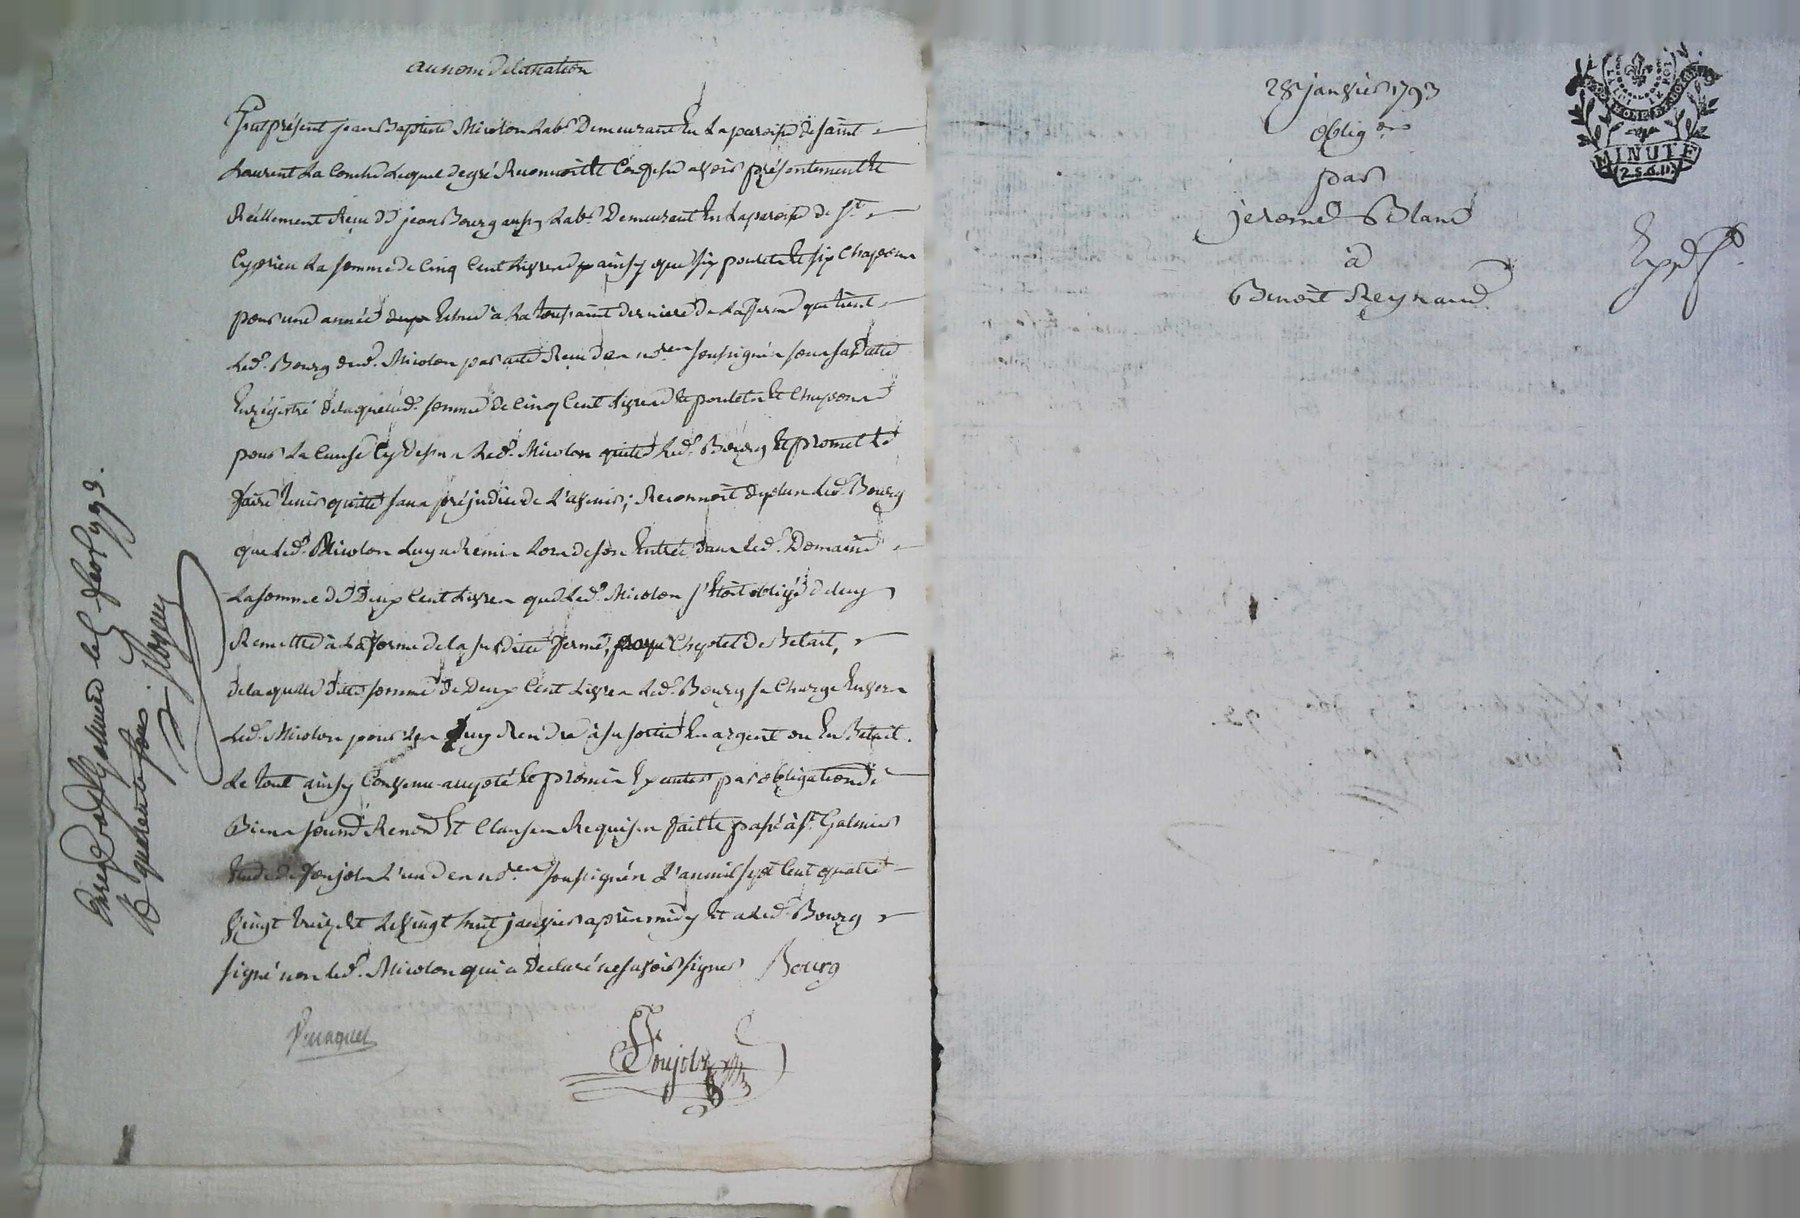 au nom de la nation
Fut présent jean Baptiste Micolon Lab.r Demeurant En La paroisse de saint
Laurent La Conche Lequel de gré Reconnoit Et Confesse avoir présentement Et
Réellement Reçu de jean Bourg aussy Lab.r Demeurant En La paroisse de S.t
Cyprien La somme de Cinq Cent Livres ainsy que six poulets Et six Chapons
pour une année Echue à La toussaint derniere de La ferme que tient
Led. Bourg dud. Micolon par acte Reçu des no.res soussignés sous sa datte
Enrégistré de laquelle d. somme de Cinq Cent Livres Et poulets Et Chapons
pour La Cause Cy dessus Led. Micolon quitte Led. Bourg Et promet Le
faire tenir quitte sans préjudice de L'avenir; Reconnoit de plus Led. Bourg
que Led. Micolon Luy a Remis Lors de son Entrée dans Led. Domaine
La somme de Deux Cent Livres que Led. Micolon s'Etoit obligé de luy
Remettre à La forme de la susditte ferme, pour Cheptel de Betail,
de laquelle ditte somme de Deux Cent Livres Led. Bourg se Charge Envers
Led. Micolon pour Luy Rendre à sa sortie En argent ou En Betail.
Le tout ainsy Convenu accepté Et promis Executer par obligation de
Biens soumis Renon Et Clauses Requises faitte passé à S.t Galmier
Etude de Poujols L'un des no.res soussignés L'an mil sept Cent quatre
vingt treize Et Le vingt huit janvier après midy Et a Led. Bourg
signé non Led. Micolon qui a Declaré ne savoir signer Bourg
Poujols
Enreg.é à S.t Galmier le
R. quarente sous
28 janvier 1793
oblig.on
par
jerome Blanc
à
Benoit Reynaud
Exp.é
LA LOI LE ROI
MINUTE
2.S.6.D.